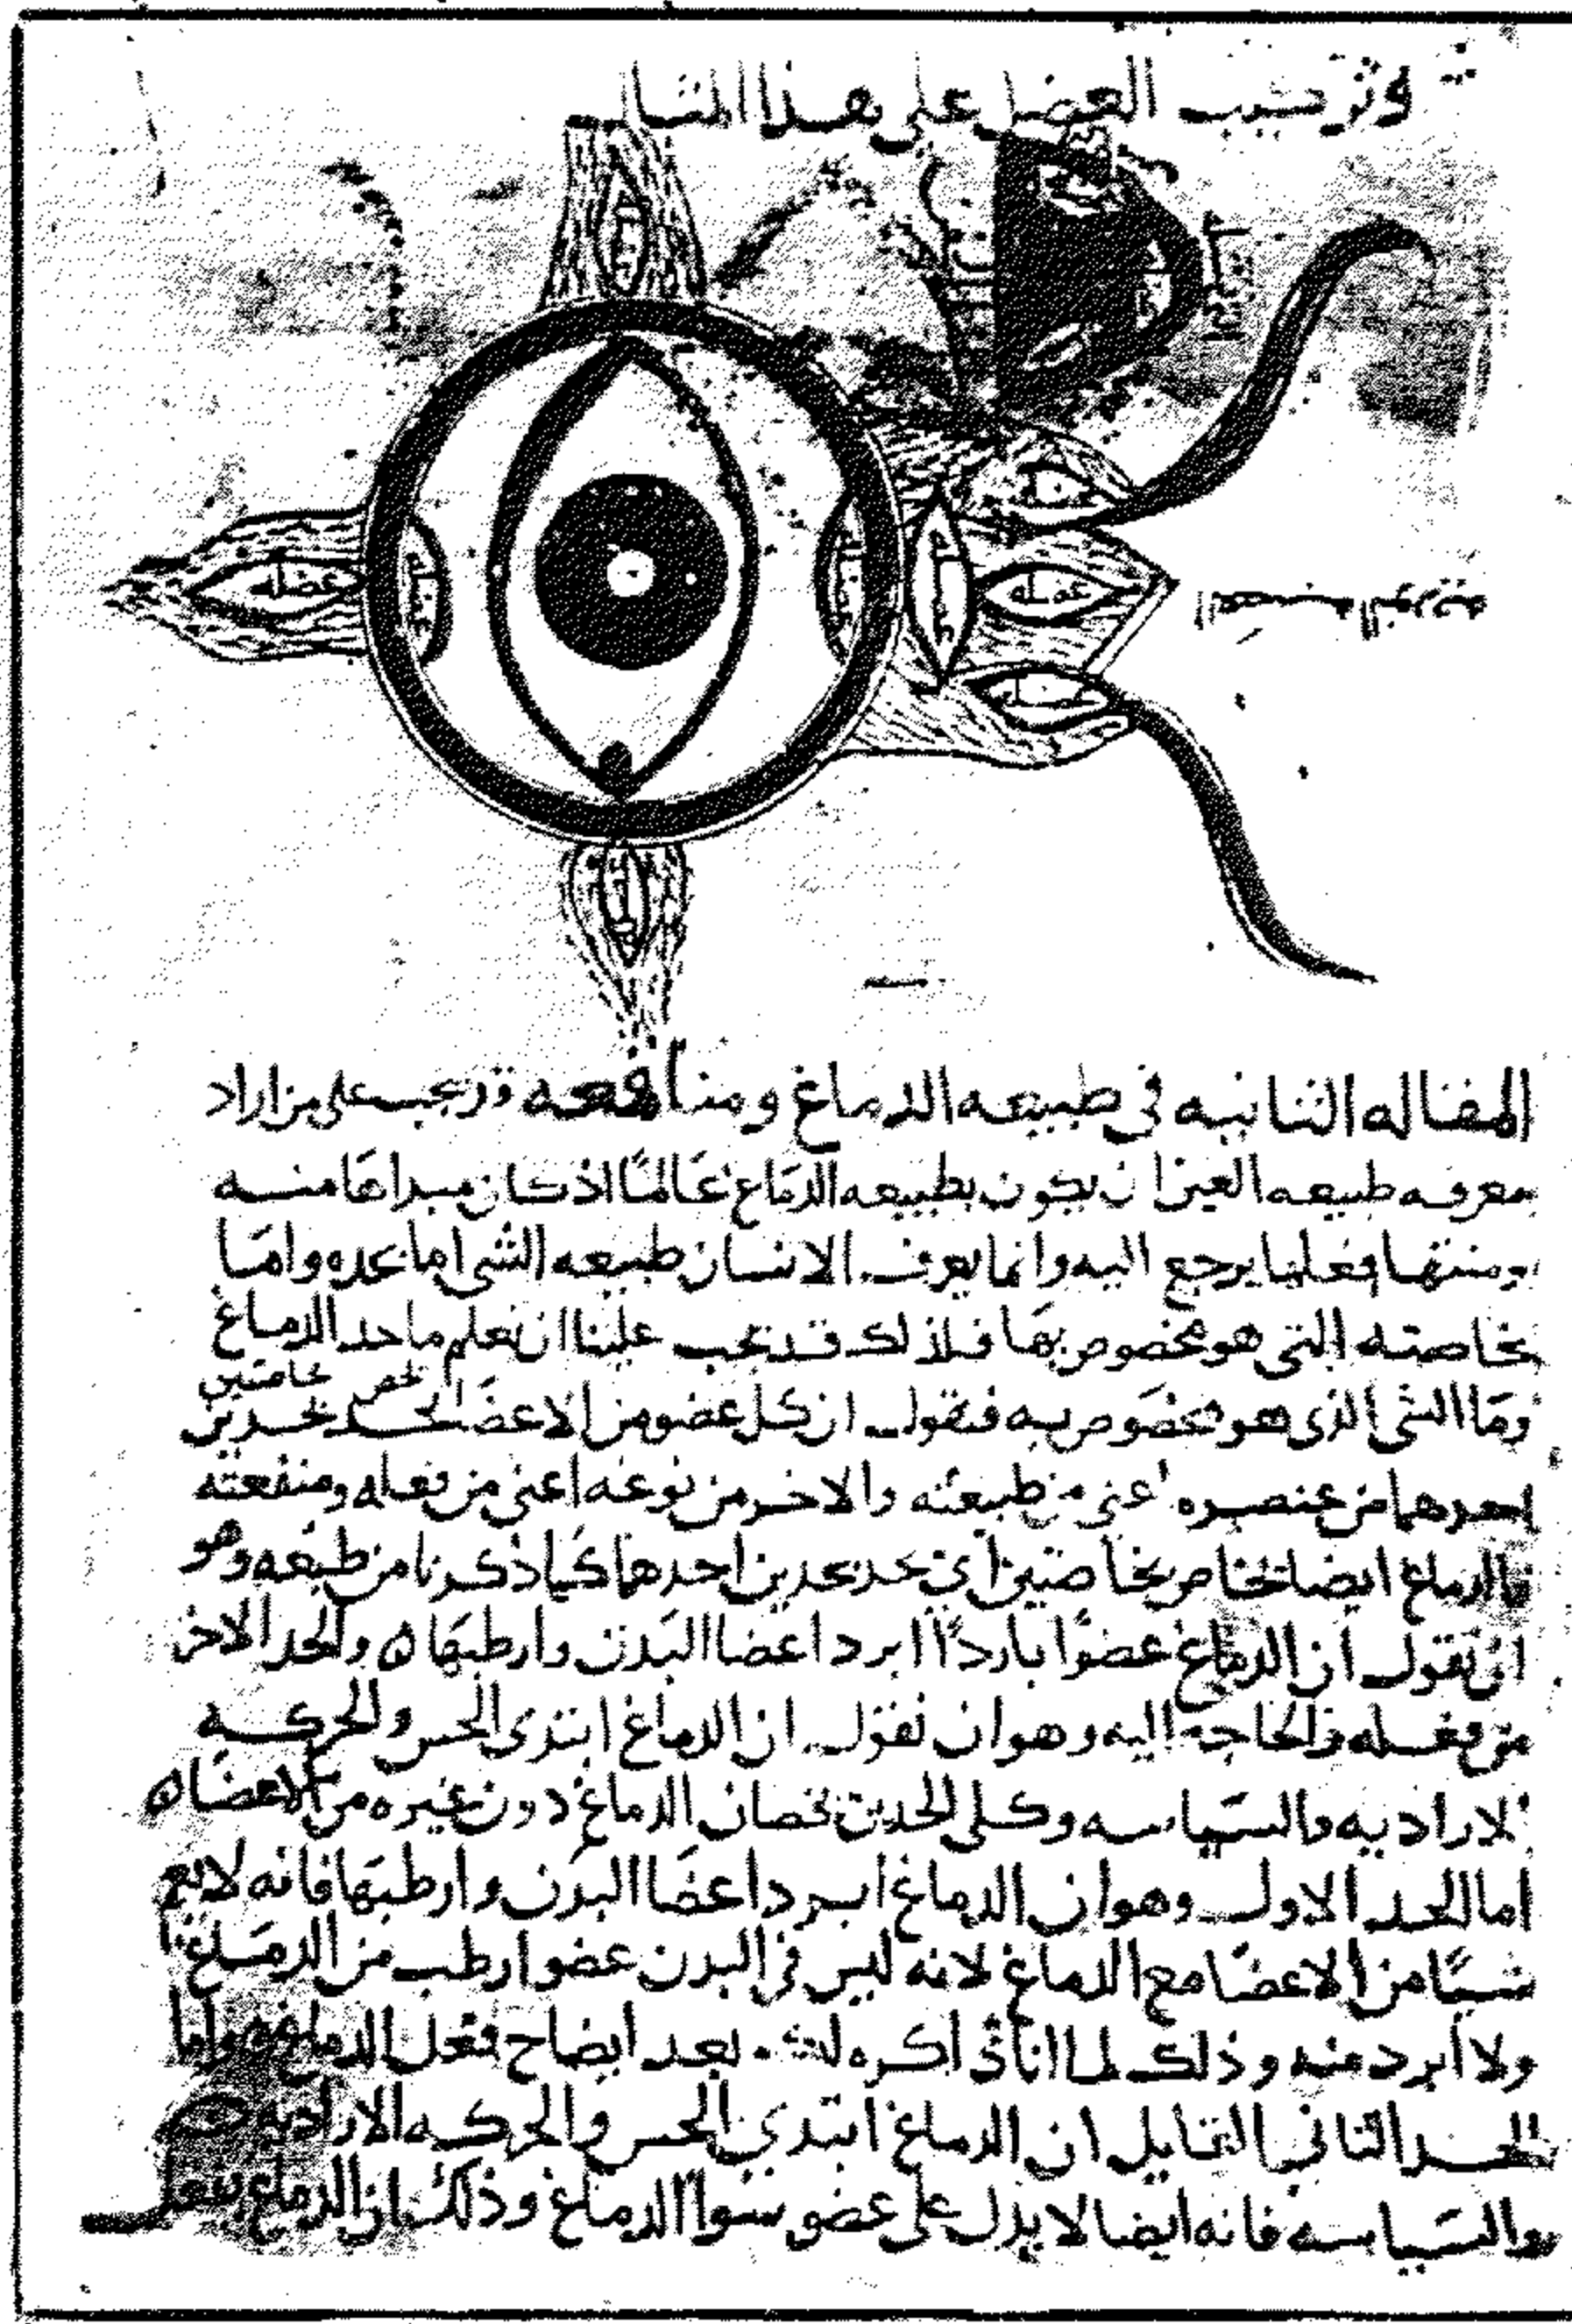 وترتيب العضل على هذا المثال
عضله
عضله
عضله
عضله
عضله
عضله
عضله
عضله
العصبه النوريه
عضله
المقاله الثانيه في طبيعه الدماغ ومنافعه قد يجب على من اراد
معرفه طبيعه العين ان يكون بطبيعه الدماغ عالمًا اذ كان مبداها منه
ومنتها فعلها يرجع اليه وانما يعرف الانسان طبيعه الشي اما بحده واما
بخاصته التي هو مخصوص بها فلذلك قد يجب علينا ان نعلم ما حد الدماغ
وما الشي الذي هو مخصوص به فنقول ان كل عضو من الاعضا يحد بحدين
يخص بخاصتين
احدهما من عنصره اعني من طبيعته والاخر من نوعه اعني من فعله ومنفعته
فالدماغ ايضا يخاص بخاصتين اي يحد بحدين احدهما كما ذكرنا من طبعه وهو
ان نقول ان الدماغ عضوًا باردًا ابرد اعضا البدن وارطبها ه والحد الاخر
من فعله والحاجه اليه وهو ان نقول ان الدماغ ابتدى الحس والحركه
الاراديه والسياسه وكلى الحدين يخصان الدماغ دون غيره من الاعضا ه
اما الحد الاول وهو ان الدماغ ابرد اعضا البدن وارطبها فانه لا يعم
شيًا من الاعضا مع الدماغ لانه ليس في البدن عضو ارطب من الدماغ
ولا ابرد منه وذلك لما انا ذاكره لك بعد ايضاح فعل الدماغ واما
الحد الثاني القايل ان الدماغ ابتدي الحس والحركه الاراديه
والسياسه فانه ايضا لا يدل على عضو سوا الدماغ وذلك ان الدماغ يفعل